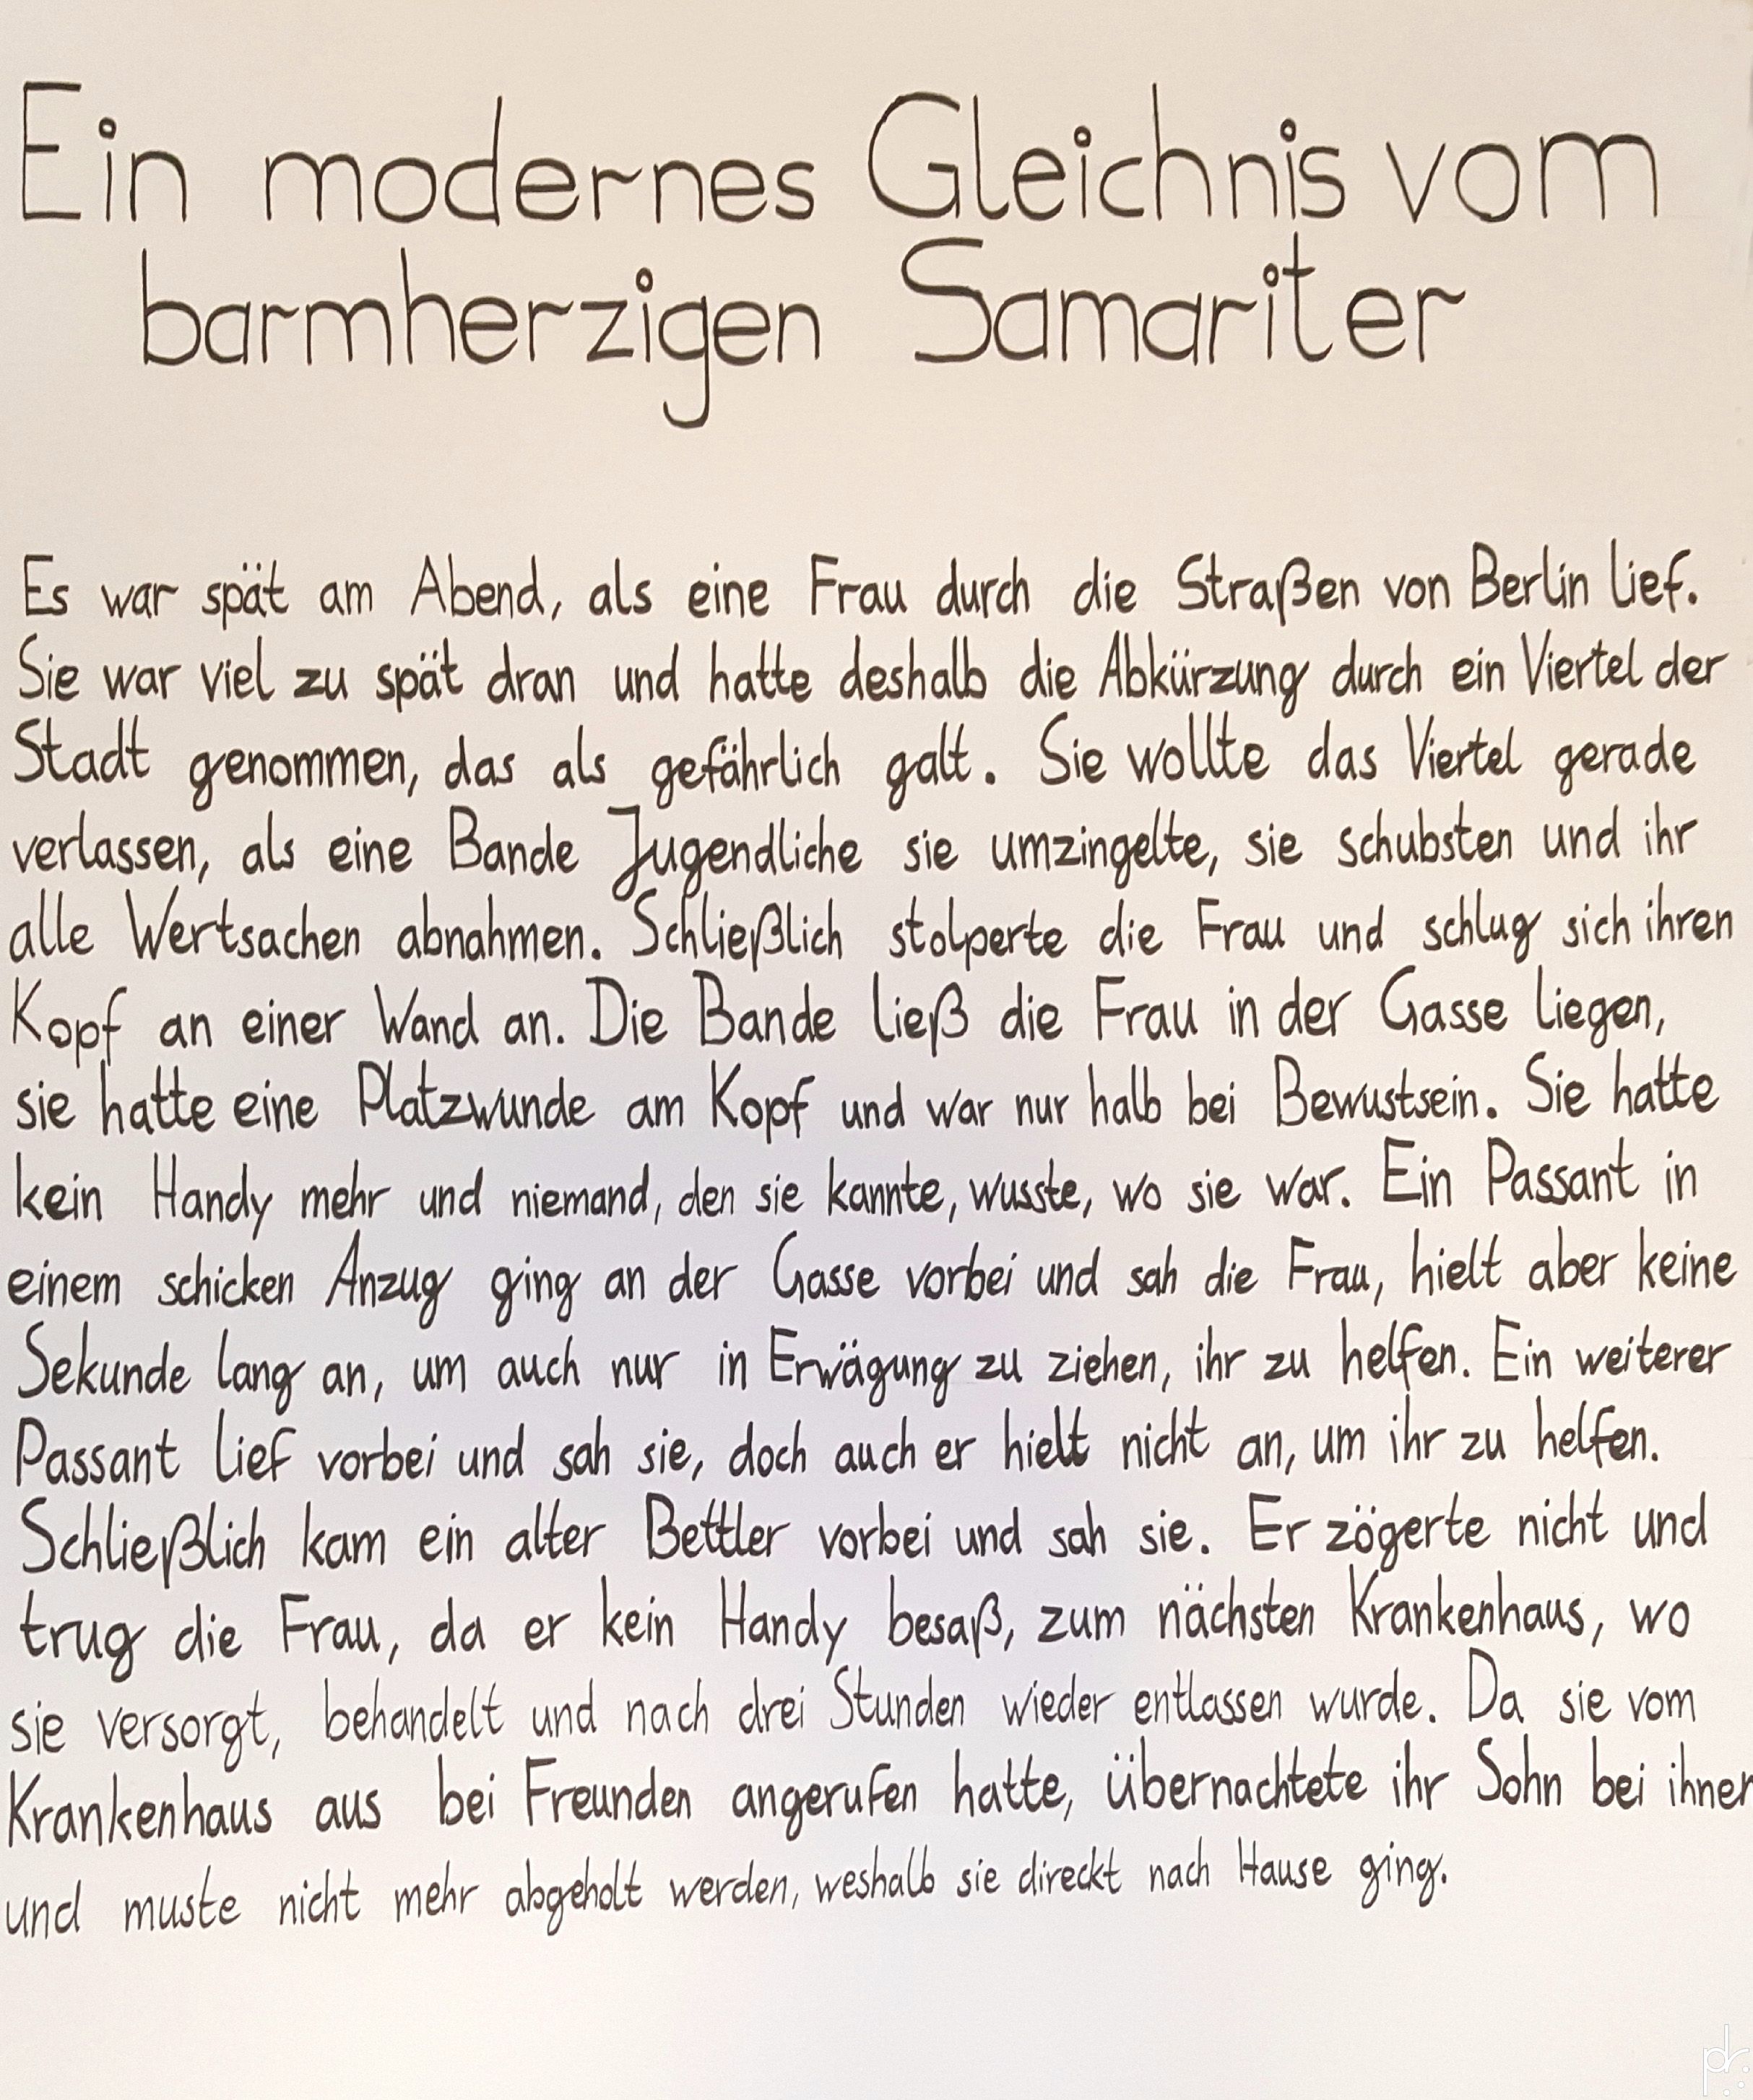 Ein modernes Gleichnis vom
barmherzigen Samariter
Es war spät am Abend, als eine Frau durch die Straßen von Berlin lief.
Sie war viel zu spät dran und hatte deshalb die Abkürzung durch ein Viertel der
Stadt genommen, das als gefährlich galt. Sie wollte das Viertel gerade
verlassen, als eine Bande Jugendliche sie umzingelte, sie schubsten und ihr
alle Wertsachen abnahmen. Schließlich stolperte die Frau und schlug sich ihren
Kopf an einer Wand an. Die Bande ließ die Frau in der Gasse liegen,
sie hatte eine Platzwunde am Kopf und war nur halb bei Bewustsein. Sie hatte
kein Handy mehr und niemand, den sie kannte, wusste, wo sie war. Ein Passant in
einem schicken Anzug ging an der Gasse vorbei und sah die Frau, hielt aber keine
Sekunde lang an, um auch nur in Erwägung zu ziehen, ihr zu helfen. Ein weiterer
Passant lief vorbei und sah sie, doch auch er hielt nicht an, um ihr zu helfen.
Schließlich kam ein alter Bettler vorbei und sah sie. Er zögerte nicht und
trug die Frau, da er kein Handy besaß, zum nächsten Krankenhaus, wo
sie versorgt, behandelt und nach drei Stunden wieder entlassen wurde. Da sie vom
Krankenhaus aus bei Freunden angerufen hatte, übernachtete ihr Sohn bei ihnen
und muste nicht mehr abgeholt werden, weshalb sie direckt nach Hause ging.
pr.